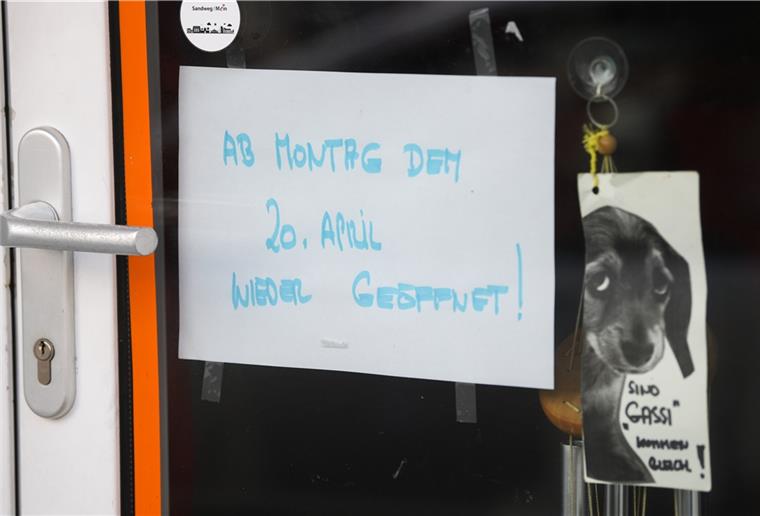 Sandweg/Main
AB MONTAG DEM
20. APRIL
WIEDER GEÖFFNET!
SIND
"GASSI"
KOMMEN
GLEICH!